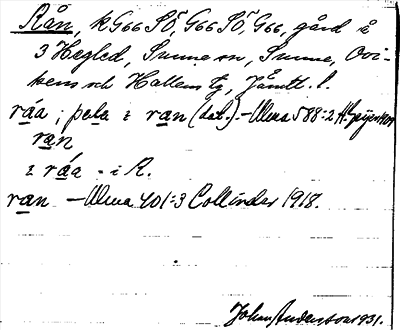 Rån, kG66SÖ, G66SÖ, G66, gård i
3 Hegled, Sunne sn, Sunne, Ovi-
kens och Hallens tg, Jämtl. l.
ráa ; pela i ran (dat.). – Ulma 588:2 H. Geijer 1909
ran
i ráa - i R.
ran – Ulma 401:3 Collinder 1918.
Johan Anderson 1931.